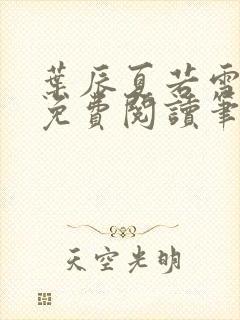 葉辰夏若雪
免費閱讀筆
天空光明